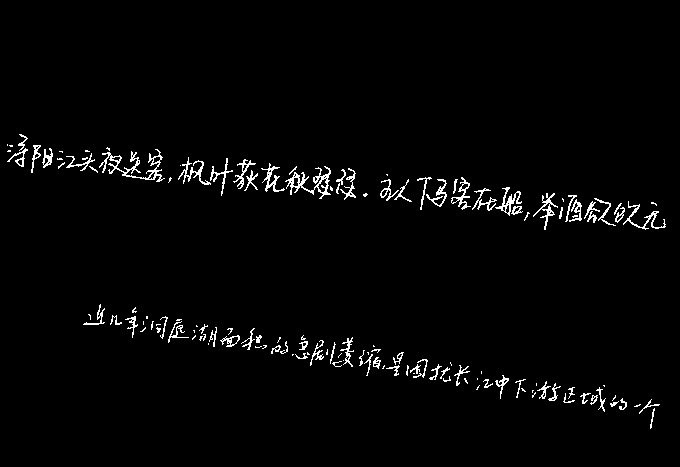 浔阳江头夜送客，枫叶荻花秋瑟瑟。主人下马客在船，举酒欲饮无
近几年洞庭湖面积的急剧萎缩，是困扰长江中下游区域的一个